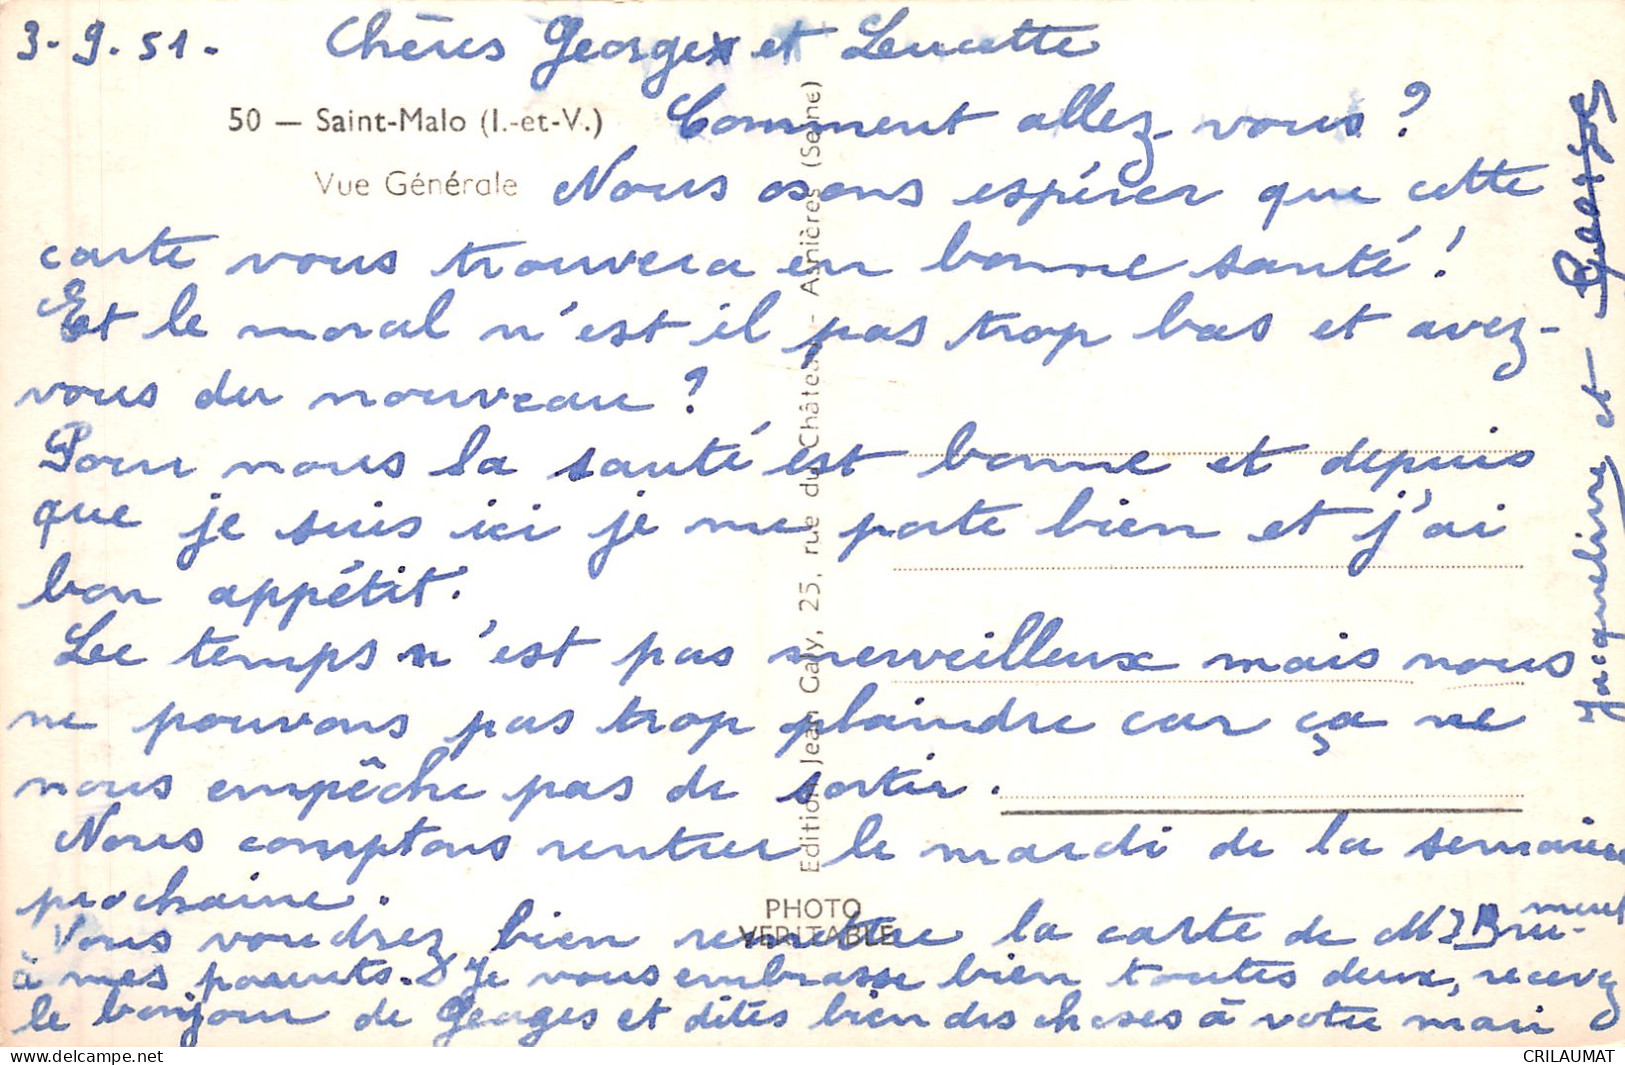 3-9-51. Chères Georges et Lucette
50 — Saint-Malo (I.-et-V.)
Comment allez-vous ?
Vue Générale
Nous osons espérer que cette
carte vous trouvera en bonne santé !
Et le moral n'est il pas trop bas et avez-
vous du nouveau ?
Pour nous la santé est bonne et depuis
que je suis ici je me porte bien et j'ai
bon appétit.
Le temps n'est pas merveilleux mais nous
ne pouvons pas trop plaindre car ça ne
nous empêche pas de sortir.
Nous comptons rentrer le mardi de la semaine
prochaine.
Vous voudrez bien remettre la carte de
à mes parents. Je vous embrasse bien toutes deux, recevez
le bonjour de Georges et dites bien des choses à votre mari
Jacqueline et Georges
Editions Jean Gaby, 25, rue du Château - Asnières (Seine)
PHOTO
VERITABLE
CRILAUMAT
delcampe.net